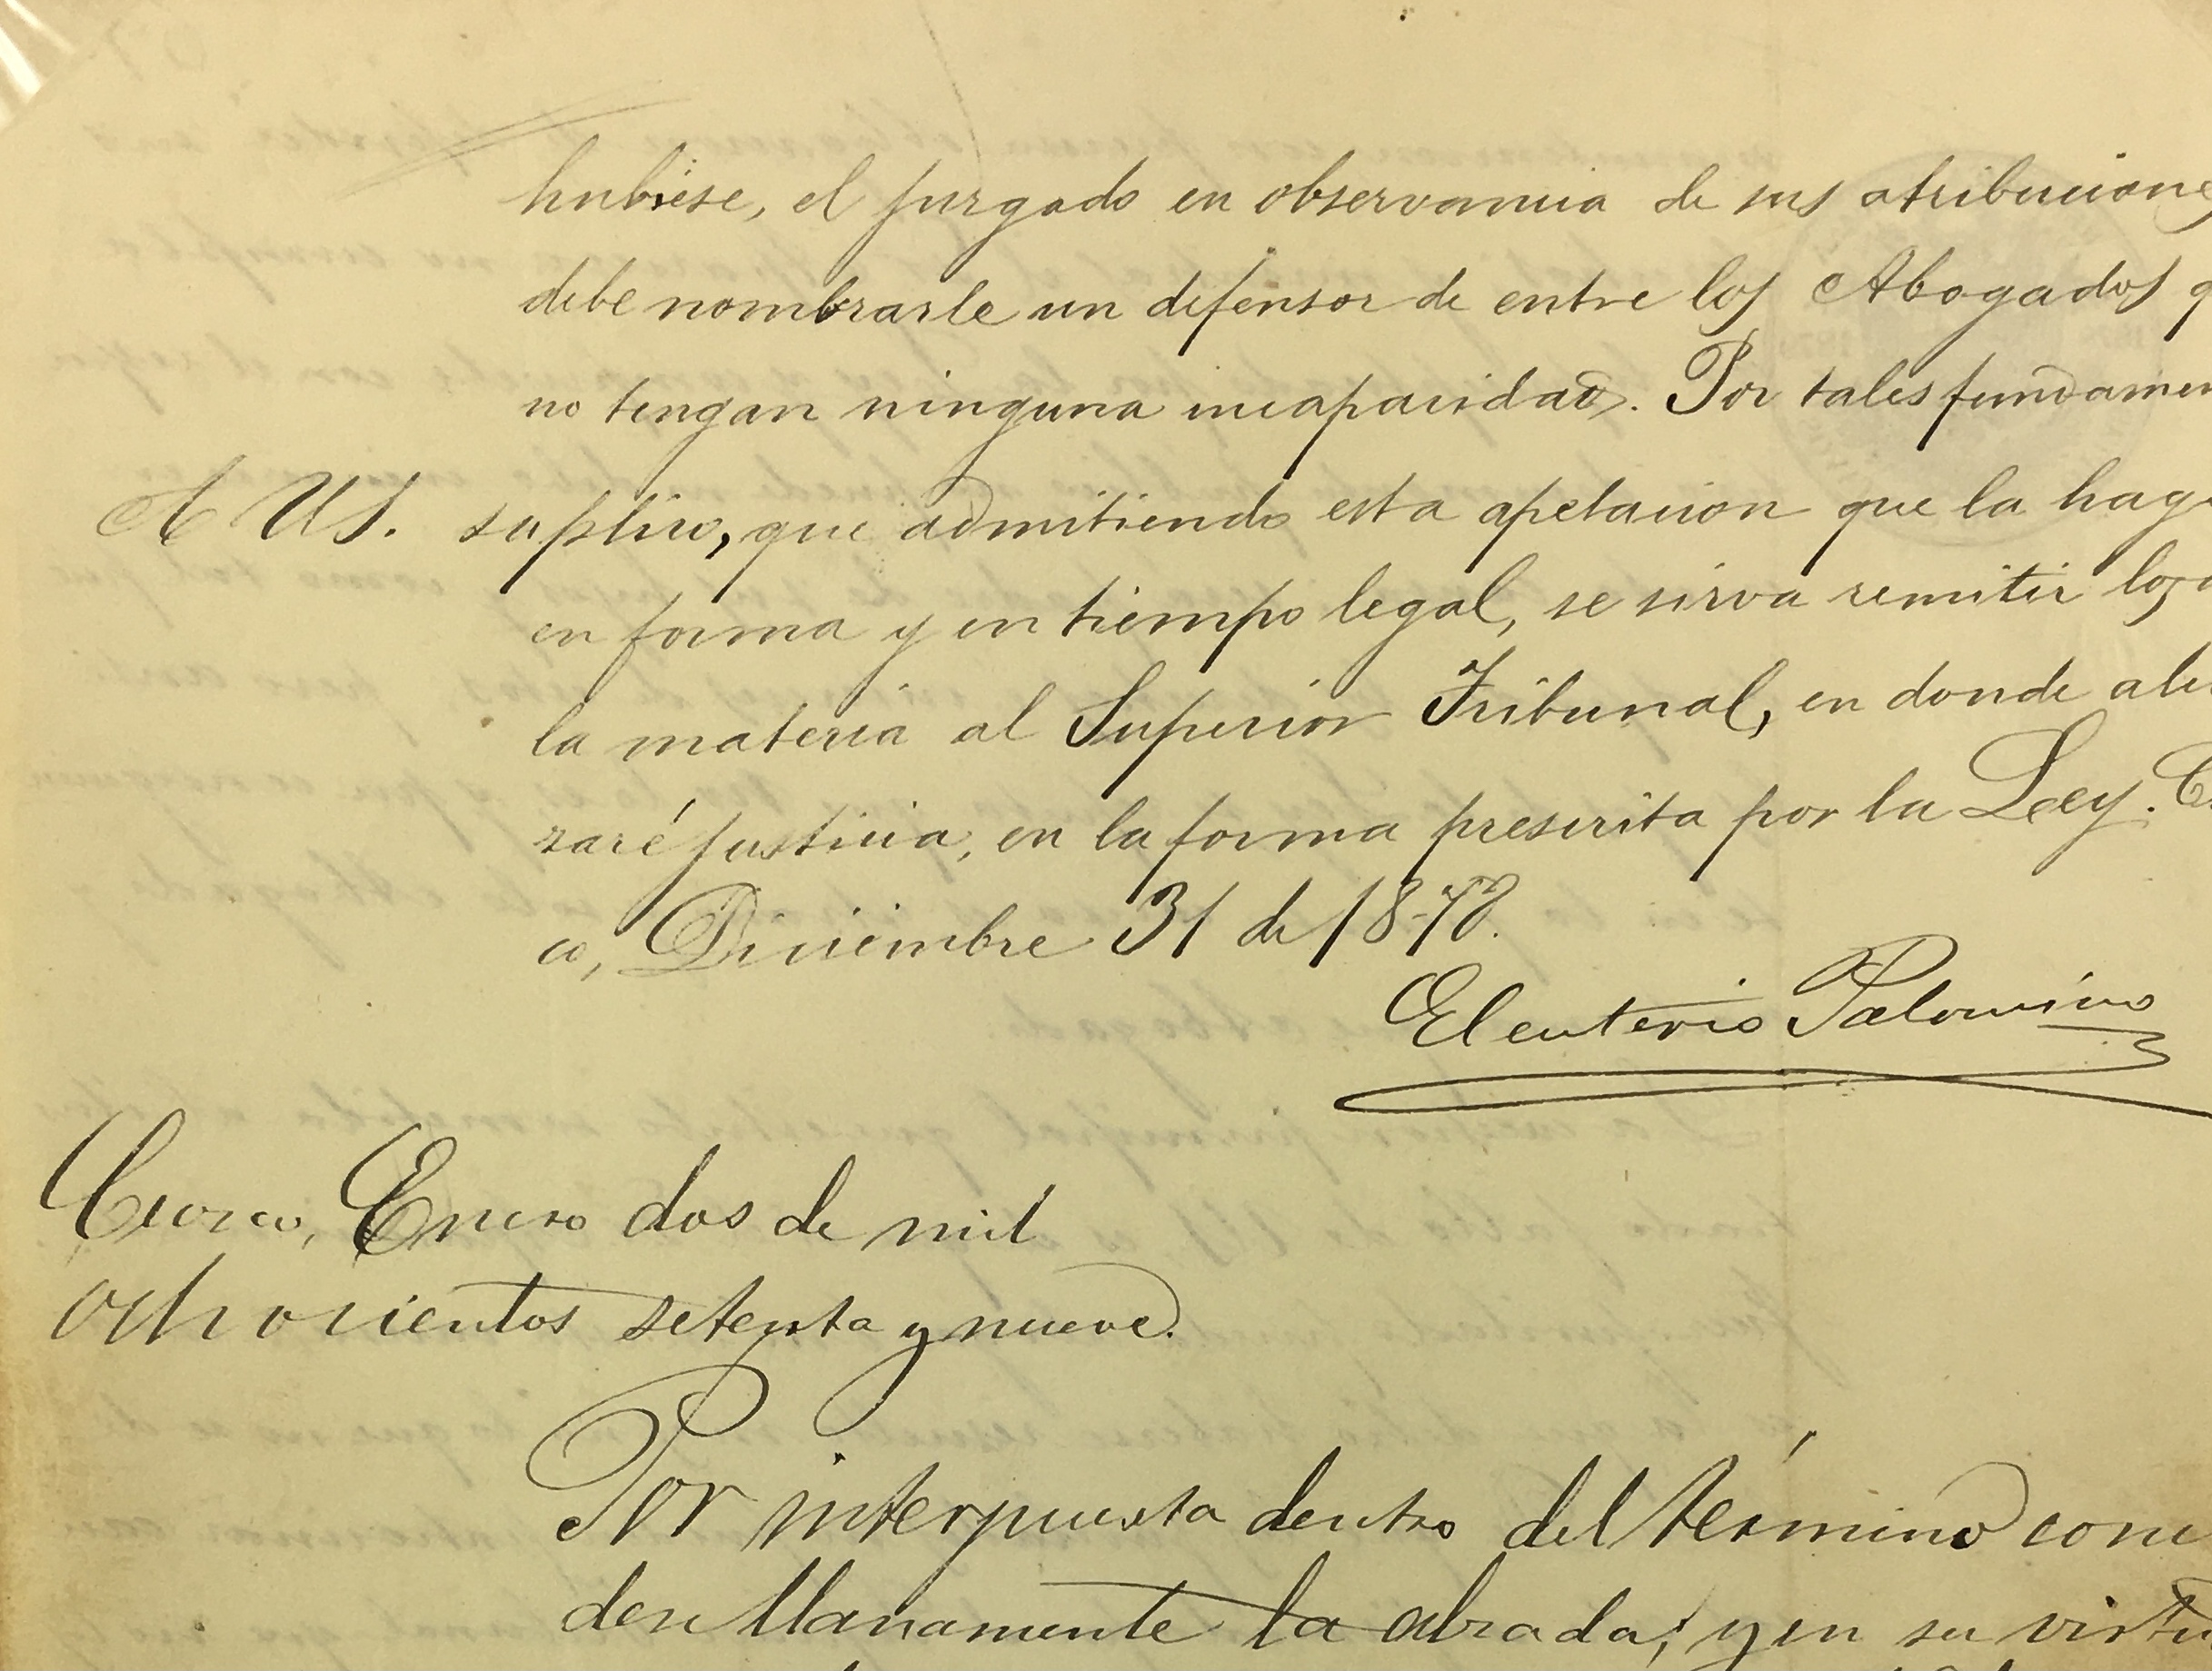 hubiese, el jurgado en observancia de sus atribucione
debe nombrarle un defensor de entre los Abogados q
no tengan ninguna incapacidad. Por tales fundamen
A US. suplico, que admitiendo esta apelacion que la hag
en forma y en tiempo legal, se sirva remitir los
la materia al Superior Tribunal, en donde al
zaré justicia, en la forma prescrita por la Ley. C
co, Diciembre 31 de 1878.
Eleuterio Palomino
Cuzco, Enero dos de mil
ochocientos setenta y nueve.
Por interpuesta dentro del término conc
dese llanamente la alzada; y en su virtu